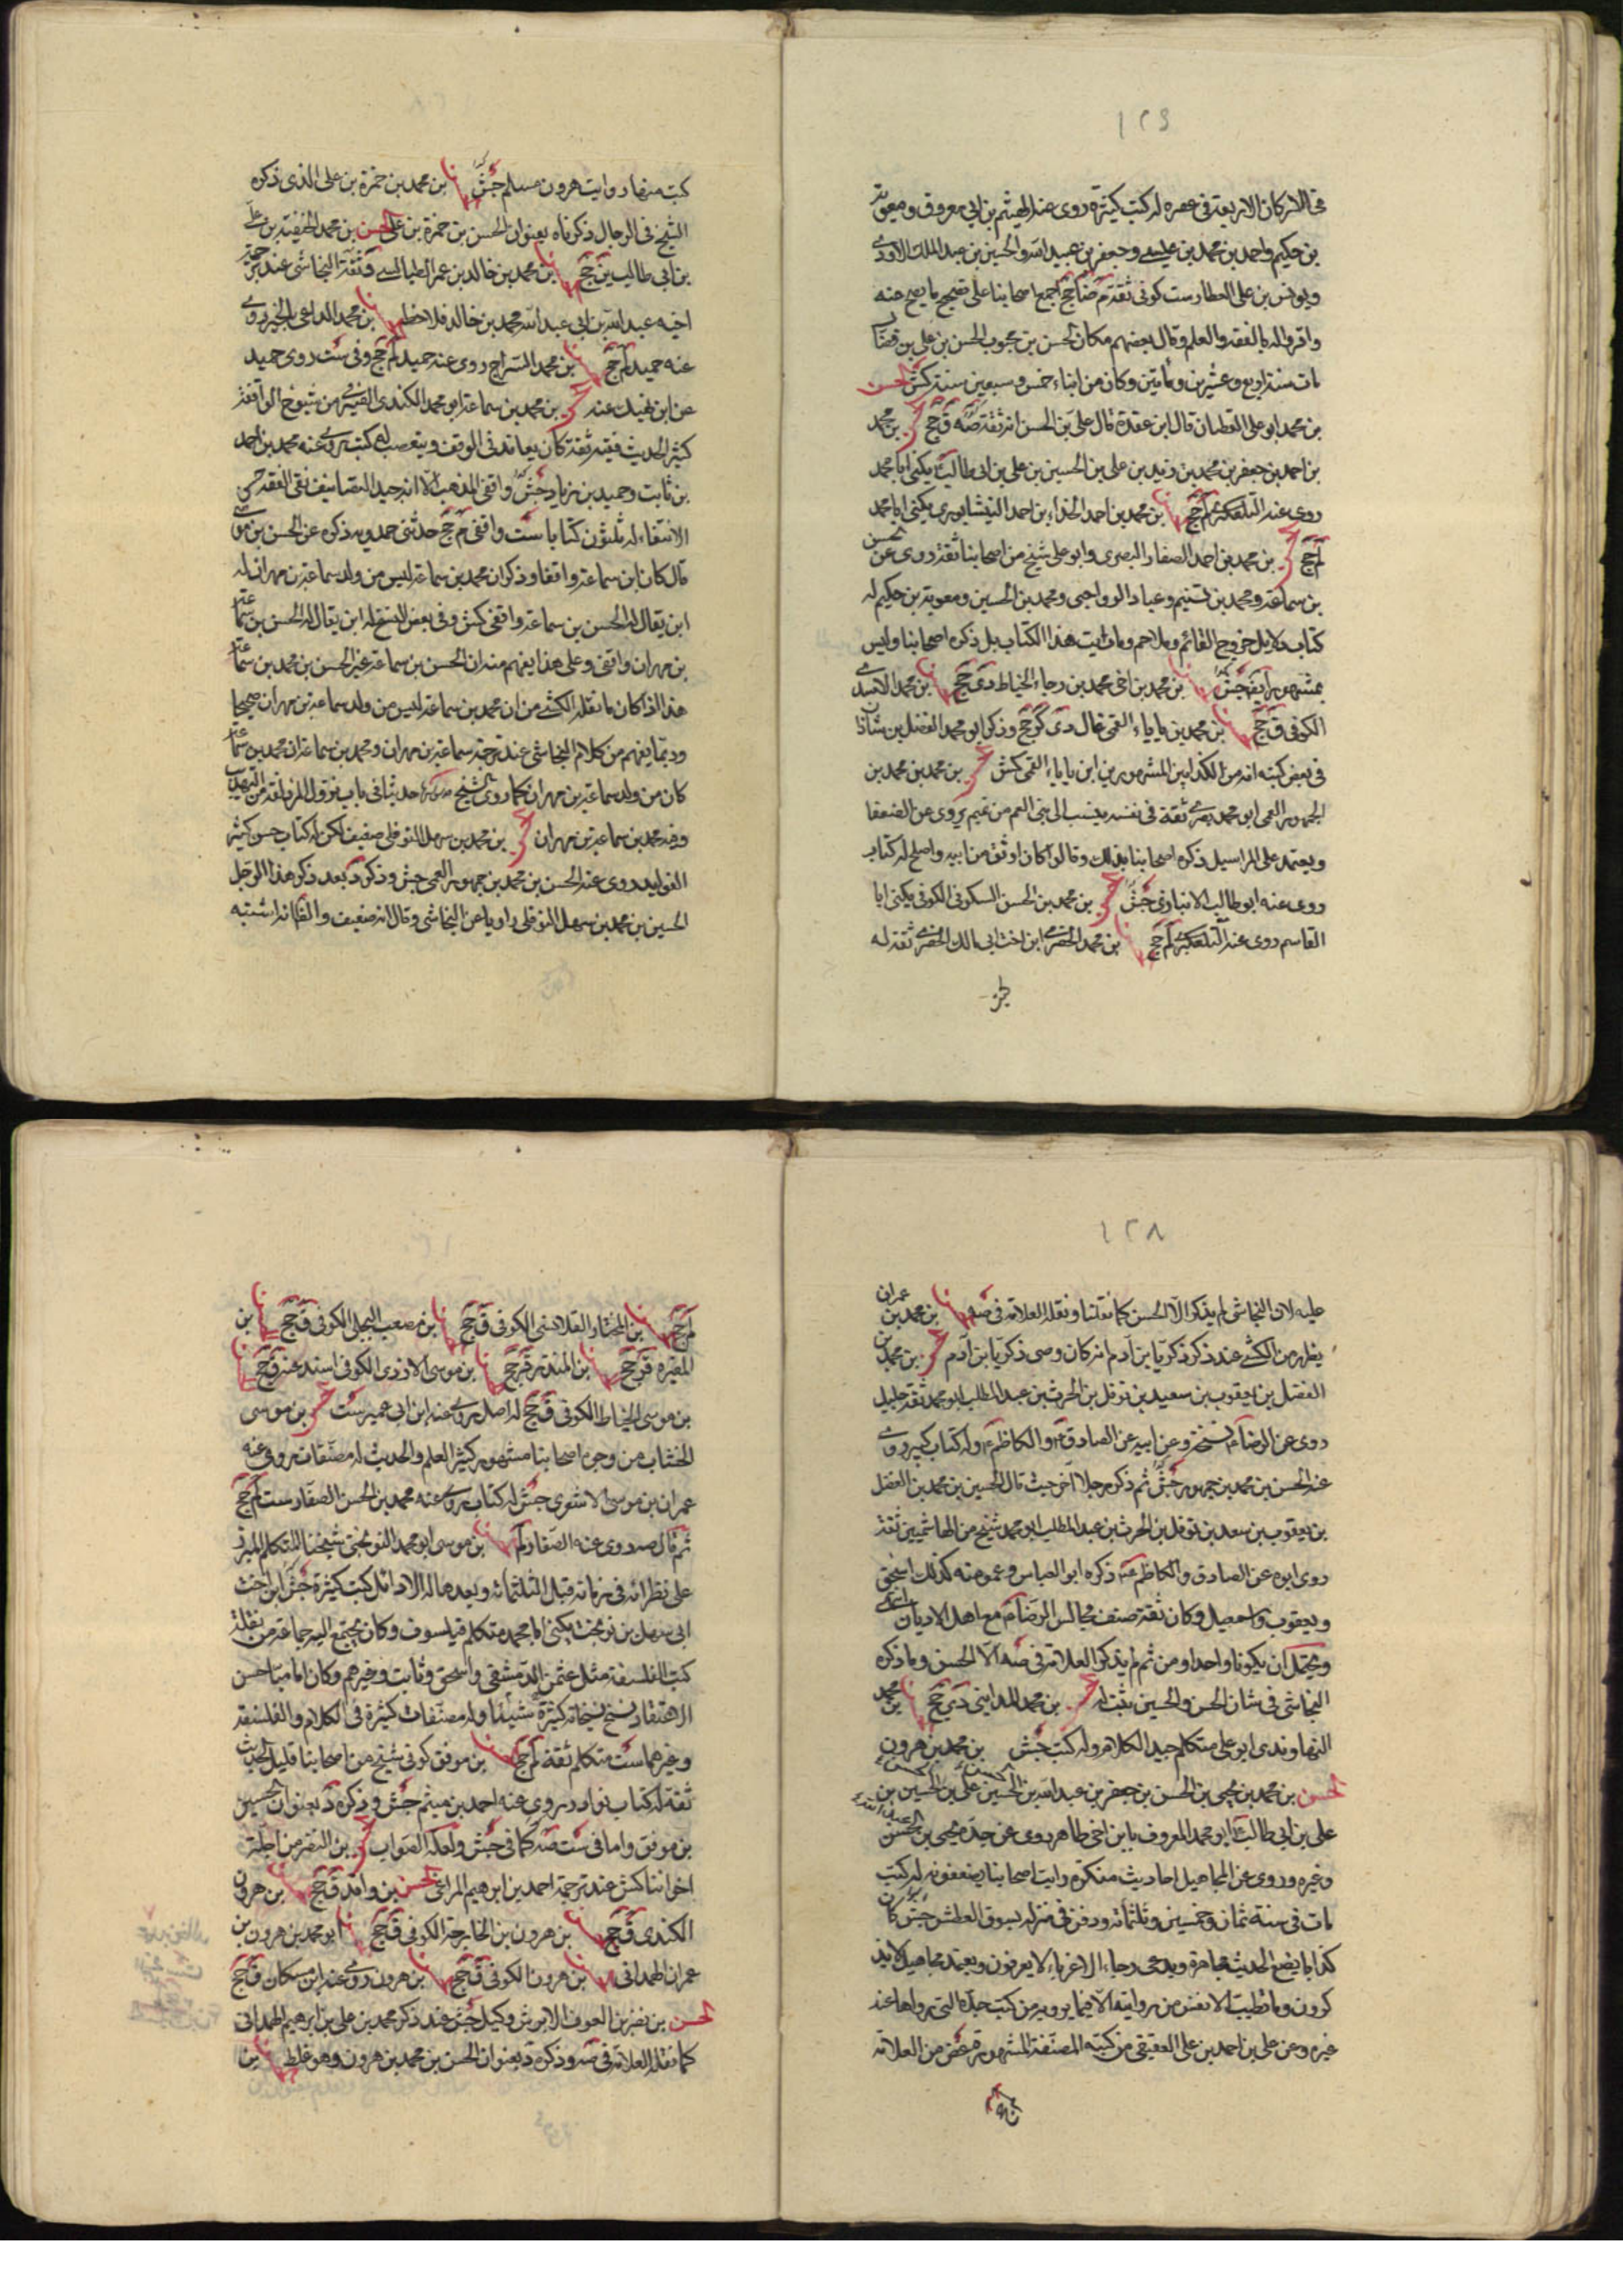 ١٢٦
في الاركان الاربعة في عصره له كتب كثيرة روى عنه الهيثم بن ابي مسروق ومعوية
بن حكيم واحمد بن محمد بن عيسى وجعفر بن عبيد الله والحسين بن عبد الملك الاودي
ويونس بن علي العطار ست كوفي ثقة م ضا جخ اجمع اصحابنا على تصحيح ما يصح عنه
واقروا له بالفقه والعلم وقال بعضهم مكان الحسن بن محبوب الحسن بن علي بن فضال
مات سنة اربع وعشرين ومأتين وكان من ابناء خمس وسبعين سنة كش الحسن
بن محمد ابو علي القطان قال ابن عقدة قال علي بن الحسن انه ثقة صه ق جخ بن محمد
بن احمد بن جعفر بن محمد بن زيد بن علي بن الحسين بن علي بن ابي طالب يكنى ابا محمد
روى عنه التلعكبري لم جخ بن محمد بن احمد الحذاء بن احمد النيشابوري يكنى ابا محمد
لم جخ بن محمد بن احمد الصفار البصري وابو علي شيخ من اصحابنا ثقة روى عن الحسن
بن سماعة ومحمد بن تسنيم وعباد الرواجني ومحمد بن الحسين ومعوية بن حكيم له
كتاب دلايل خروج القائم وملاحم وما رايت هذا الكتاب بل ذكره اصحابنا وليس
بمشهور ايضا جش بن محمد بن اخي محمد بن رجاء الخياط دي جخ بن محمد الاسدي
الكوفي ق جخ بن محمد بن بابا القمي غال دي كر جخ وذكر ابو محمد الفضل بن شاذان
في بعض كتبه انه من الكذابين المشهورين ابن بابا القمي كش بن محمد بن محمد بن
الجمهور العمي ابو محمد بصري ثقة في نفسه ينسب الى بني العم من تميم يروى عن الضعفا
ويعتمد على المراسيل ذكره اصحابنا بذلك وقالوا كان اوثق من ابيه واصلح له كتاب
روى عنه ابو طالب الانباري جش بن محمد بن الحسن السكوني الكوفي يكنى ابا
القاسم روى عنه التلعكبري لم جخ بن محمد الحضرمي ابن اخت ابي مالك الحضرمي ثقة له
كتب منها رواية هرون مسلم جش بن محمد بن حمزة بن علي الذي ذكره
الشيخ في الرجال ذكرناه بعنوان الحسن بن حمزة بن علي الحسن بن محمد الحنفية بن علي
بن ابي طالب ين جخ بن محمد بن خالد بن عمر الطيالسي وثقة النجاشي عند ترجمة
اخيه عبد الله بن ابي عبد الله محمد بن خالد فلاحظ بن محمد الداعي بالخير روى
عنه حميد لم جخ بن محمد السراج روى عنه حميد لم جخ وفي ست روى حميد
عن ابن نهيك عنه بن محمد بن سماعة ابو محمد الكندي الصيرفي من شيوخ الواقفة
كثير الحديث فقيه ثقة كان يعاند في الوقف ويتعصب له كتب روى عنه محمد بن احمد
بن ثابت وحميد بن زياد جش واقفي المذهب الا انه جيد التصانيف نقي الفقه حسن
الانتقاء له ثلثون كتابا ست واقفي م جخ حدثني حمدويه ذكره عن الحسن بن موسى
قال كان ابن سماعة واقفا وذكر ان محمد بن سماعة ليس من ولد سماعة بن مهران له
ابن يقال له الحسن بن سماعة واقفي كش وفي بعض النسخ له ابن يقال له الحسن بن سماعة
بن مهران واقفي وعلى هذا يفهم منه ان الحسن بن سماعة غير الحسن بن محمد بن سماعة
هذا اذا كان ما نقله الكشي من ان محمد بن سماعة ليس من ولد سماعة بن مهران صحيحا
وربما يفهم من كلام النجاشي عند ترجمة سماعة بن مهران ومحمد بن سماعة ان محمد بن سماعة
كان من ولد سماعة بن مهران كما روى الشيخ حديثا في باب نزول المزدلفة من التهذيب
وفيه محمد بن سماعة بن مهران بن محمد بن سهل النوفلي ضعيف لكن له كتاب حسن كثير
الفوايد روى عنه الحسن بن محمد بن جمهور العمي جش وذكر د بعد ذكر هذا الرجل
الحسين بن محمد بن سهل النوفلي راويا عن النجاشي وقال انه ضعيف والظ انه اشتبه
١٢٨
عليه لان النجاشي لم يذكر الا الحسن كما نقلنا ونقله العلامة في صه بن محمد بن عمران
يظهر من الكشي عند ذكر زكريا ابن آدم انه كان وصى زكريا ابن آدم بن محمد بن
الفضل بن يعقوب بن سعيد بن نوفل بن الحرث بن عبد المطلب ابو محمد ثقة جليل
روى عن الرضا ع نسخة وعن ابيه عن الصادق والكاظم ع وله كتاب كبير روى
عنه الحسن بن محمد بن جمهور جش ثم ذكر رجلا آخر حيث قال الحسين بن محمد بن الفضل
بن يعقوب بن سعد بن نوفل بن الحرث بن عبد المطلب ابو محمد شيخ من الهاشميين ثقة
روى ابوه عن الصادق والكاظم ع ذكره ابو العباس وعمومته كذلك اسحق
ويعقوب واسمعيل وكان ثقة صنف مجالس الرضا ع مع اهل الاديان انتهى
ويحتمل ان يكونا واحدا ومن ثم لم يذكر العلامة في صه الا الحسن وما ذكره
النجاشي في شان الحسن والحسين يثبت له بن محمد المدايني دي جخ بن محمد
النهاوندي ابو علي متكلم جيد الكلام وله كتب جش بن محمد بن هرون
الحسن بن محمد بن يحيى بن الحسن بن جعفر بن عبد الله بن الحسين علي بن الحسين بن
علي بن ابي طالب ابو محمد المعروف بابن اخي طاهر روى عن جده يحيى بن الحسن
وغيره وروى عن المجاهيل احاديث منكرة رايت اصحابنا يضعفونه له كتب
مات في سنة ثمان وخمسين وثلثمائة ودفن في منزله بسوق العطش جش كان
كذابا يضع الحديث مجاهرة ويدعى رجاء الاغرباء لا يعرفون ويعتمد مجاهيل لا يذ
كرون وما تطيب الانفس من روايته الا فيما يرويه من كتب جده التي رواها عنه
غيره وعن علي بن احمد بن علي العقيقي من كتبه المصنفة المشهورة غض من العلامة
لم جخ بن المختار القلانسي الكوفي ق جخ بن مصعب البجلي الكوفي ق جخ بن
المغيره قر جخ بن المنذر قر جخ بن موسى الازدي الكوفي اسند عنه ق جخ
بن موسى الخياط الكوفي ق جخ له اصل روى عنه ابن ابي عمير ست بن موسى
الخشاب من وجوه اصحابنا مشهور كثير العلم والحديث له مصنفات روى عنه
عمران بن موسى الاشعري جش له كتاب روى عنه محمد بن الحسن الصفار ست لم جخ
ثم قال روى عنه الصفار لم بن موسى ابو محمد النوبختي شيخنا المتكلم المبرز
على نظرائه في زمانه قبل الثلثمائة وبعدها له الاوائل كتب كثيرة جش ابن اخت
ابي سهل بن نوبخت يكنى ابا محمد متكلم فيلسوف وكان يجتمع اليه جماعة من نقلة
كتب الفلسفة مثل عثمن الدمشقي واسحق وثابت وغيرهم وكان اماميا حسن
الاعتقاد نسخ بخطه كثيرة شيئا وله مصنفات كثيرة في الكلام والفلسفة
وغيرهما ست متكلم ثقة لم جخ بن موفق كوفي شيخ من اصحابنا قليل الحديث
ثقة له كتاب نوادر روى عنه احمد بن ميثم جش وذكره د بعنوان الحسين
بن موفق واما في ست صه كما في جش ولعله الصواب بن النضر من اجلة
اخواننا كش عند ترجمة احمد بن ابرهيم المراغي الحسن بن واقد ق جخ بن هرون
الكندي ق جخ بن هرون بن الخارجة الكوفي ق جخ ابو محمد بن هرون بن
عمران الهمداني بن هرون الكوفي ق جخ بن هرون روى عنه ابن مسكان ق جخ
الحسن بن نضر بن العوف الابرش وكيل جش عند ذكر محمد بن علي بن ابرهيم الهمداني
كما نقله العلامة في صه وذكره د بعنوان الحسن بن محمد بن هرون وهو غلط بن